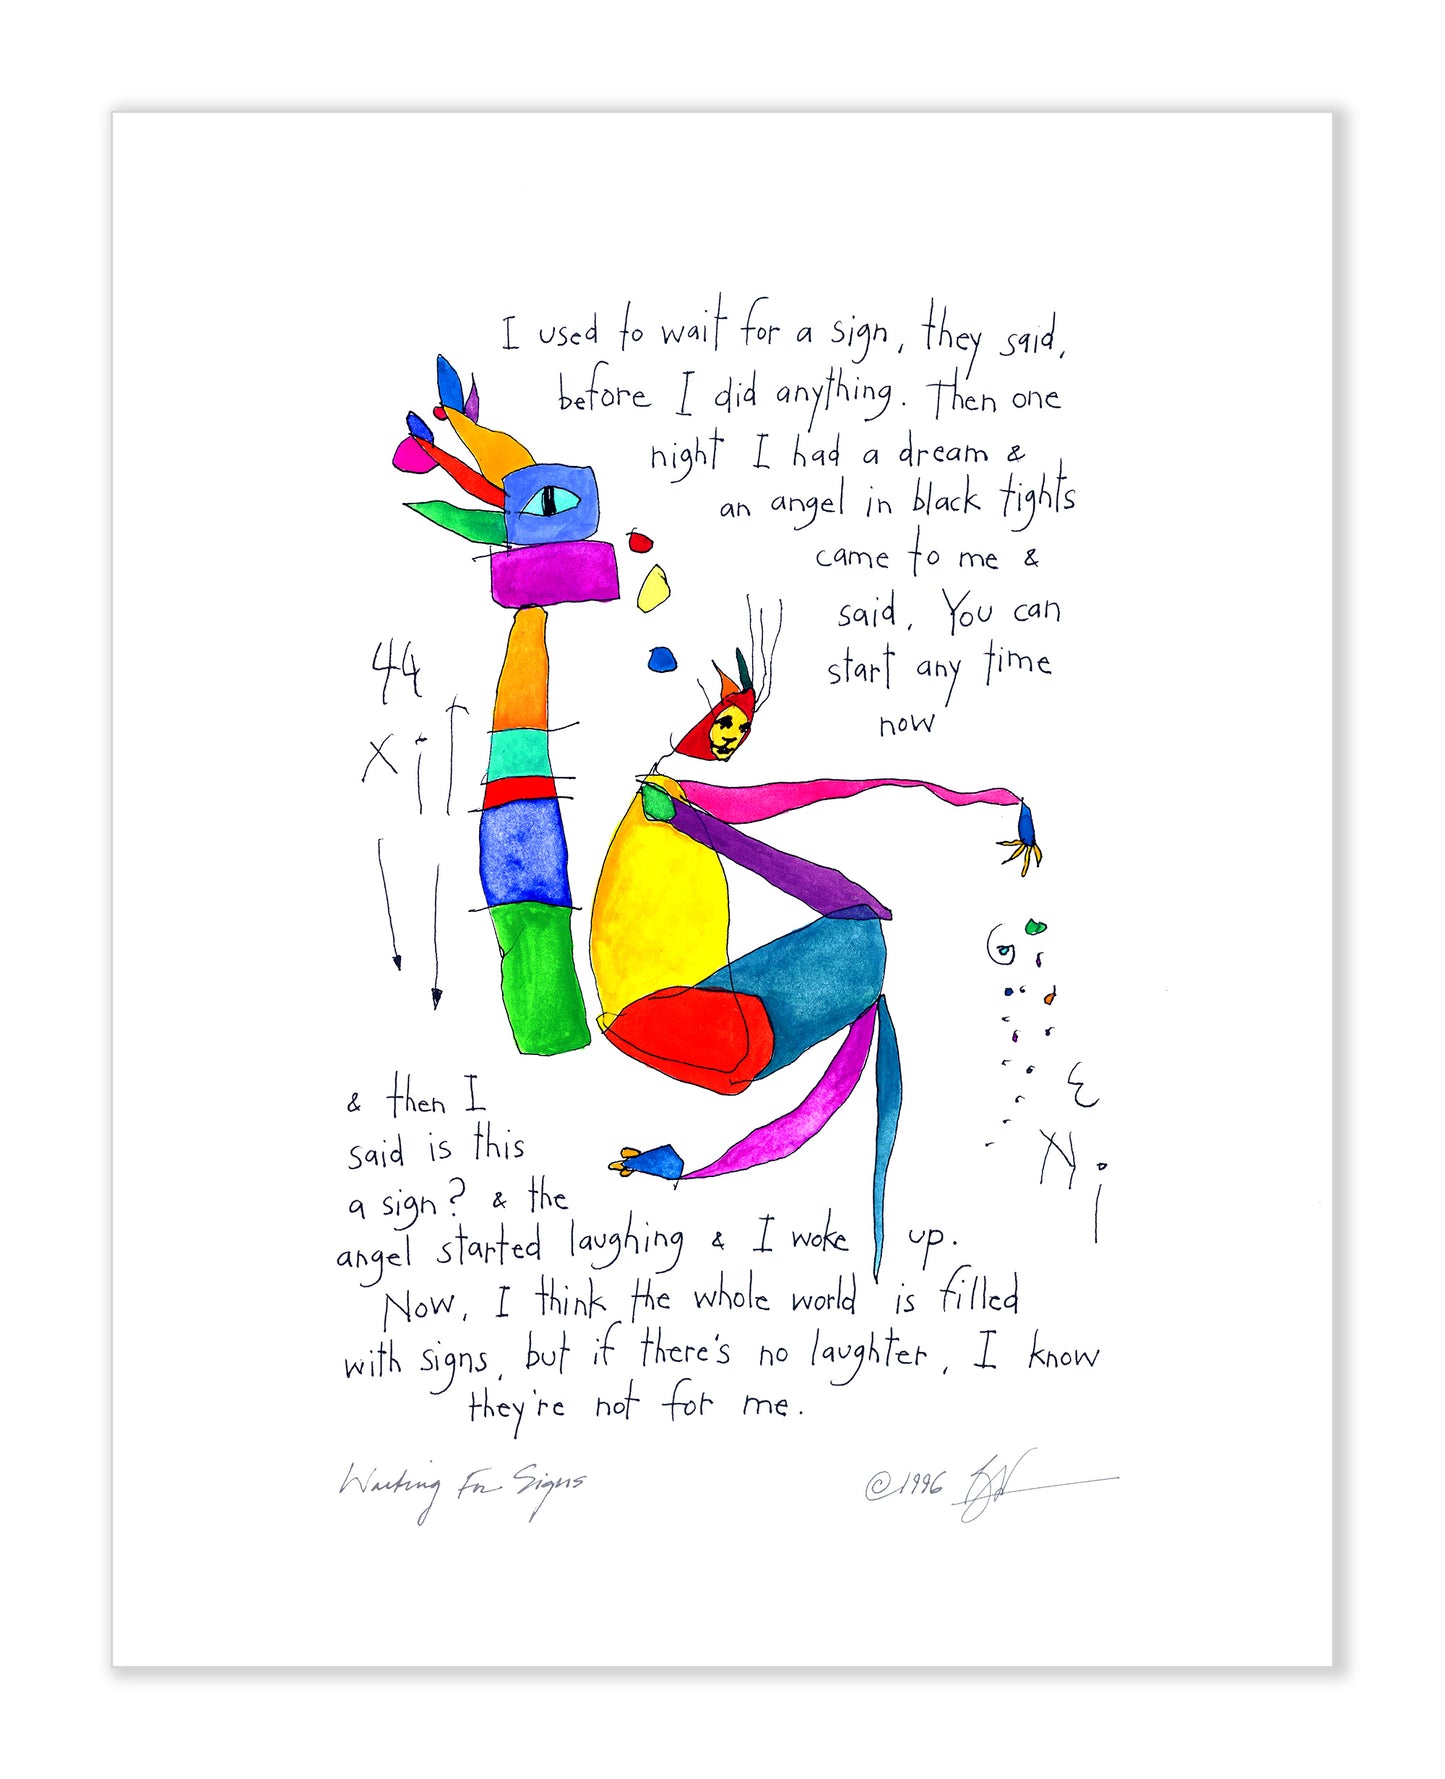 I used to wait for a sign, they said,
before I did anything. Then one
night I had a dream &
an angel in black tights
came to me &
said, You can
start any time
now
44
& then I
said is this
a sign? & the
angel started laughing & I woke up.
Now, I think the whole world is filled
with signs, but if there's no laughter, I know
they're not for me.
Waiting For Signs
©1996